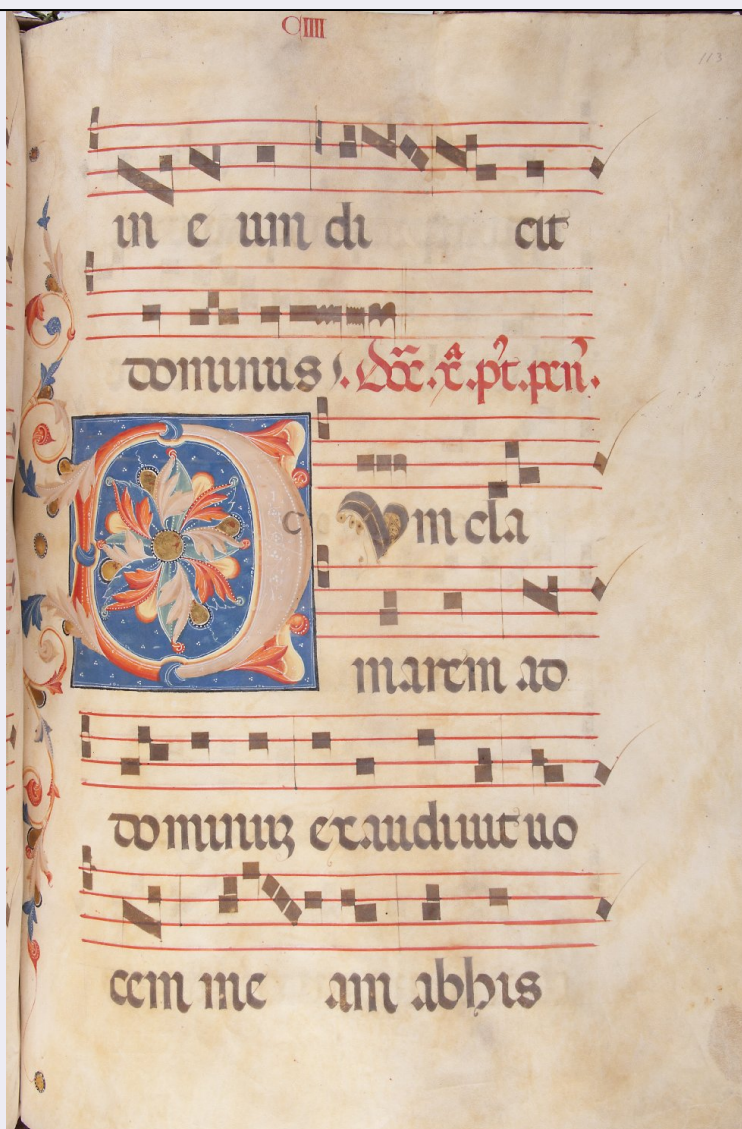 CIIII
113
in e um di cit
dominus. Dōc.x̄.pt.pen̄.
Dum cla
marem ad
dominuz exaudiuit uo
cem me am abhis